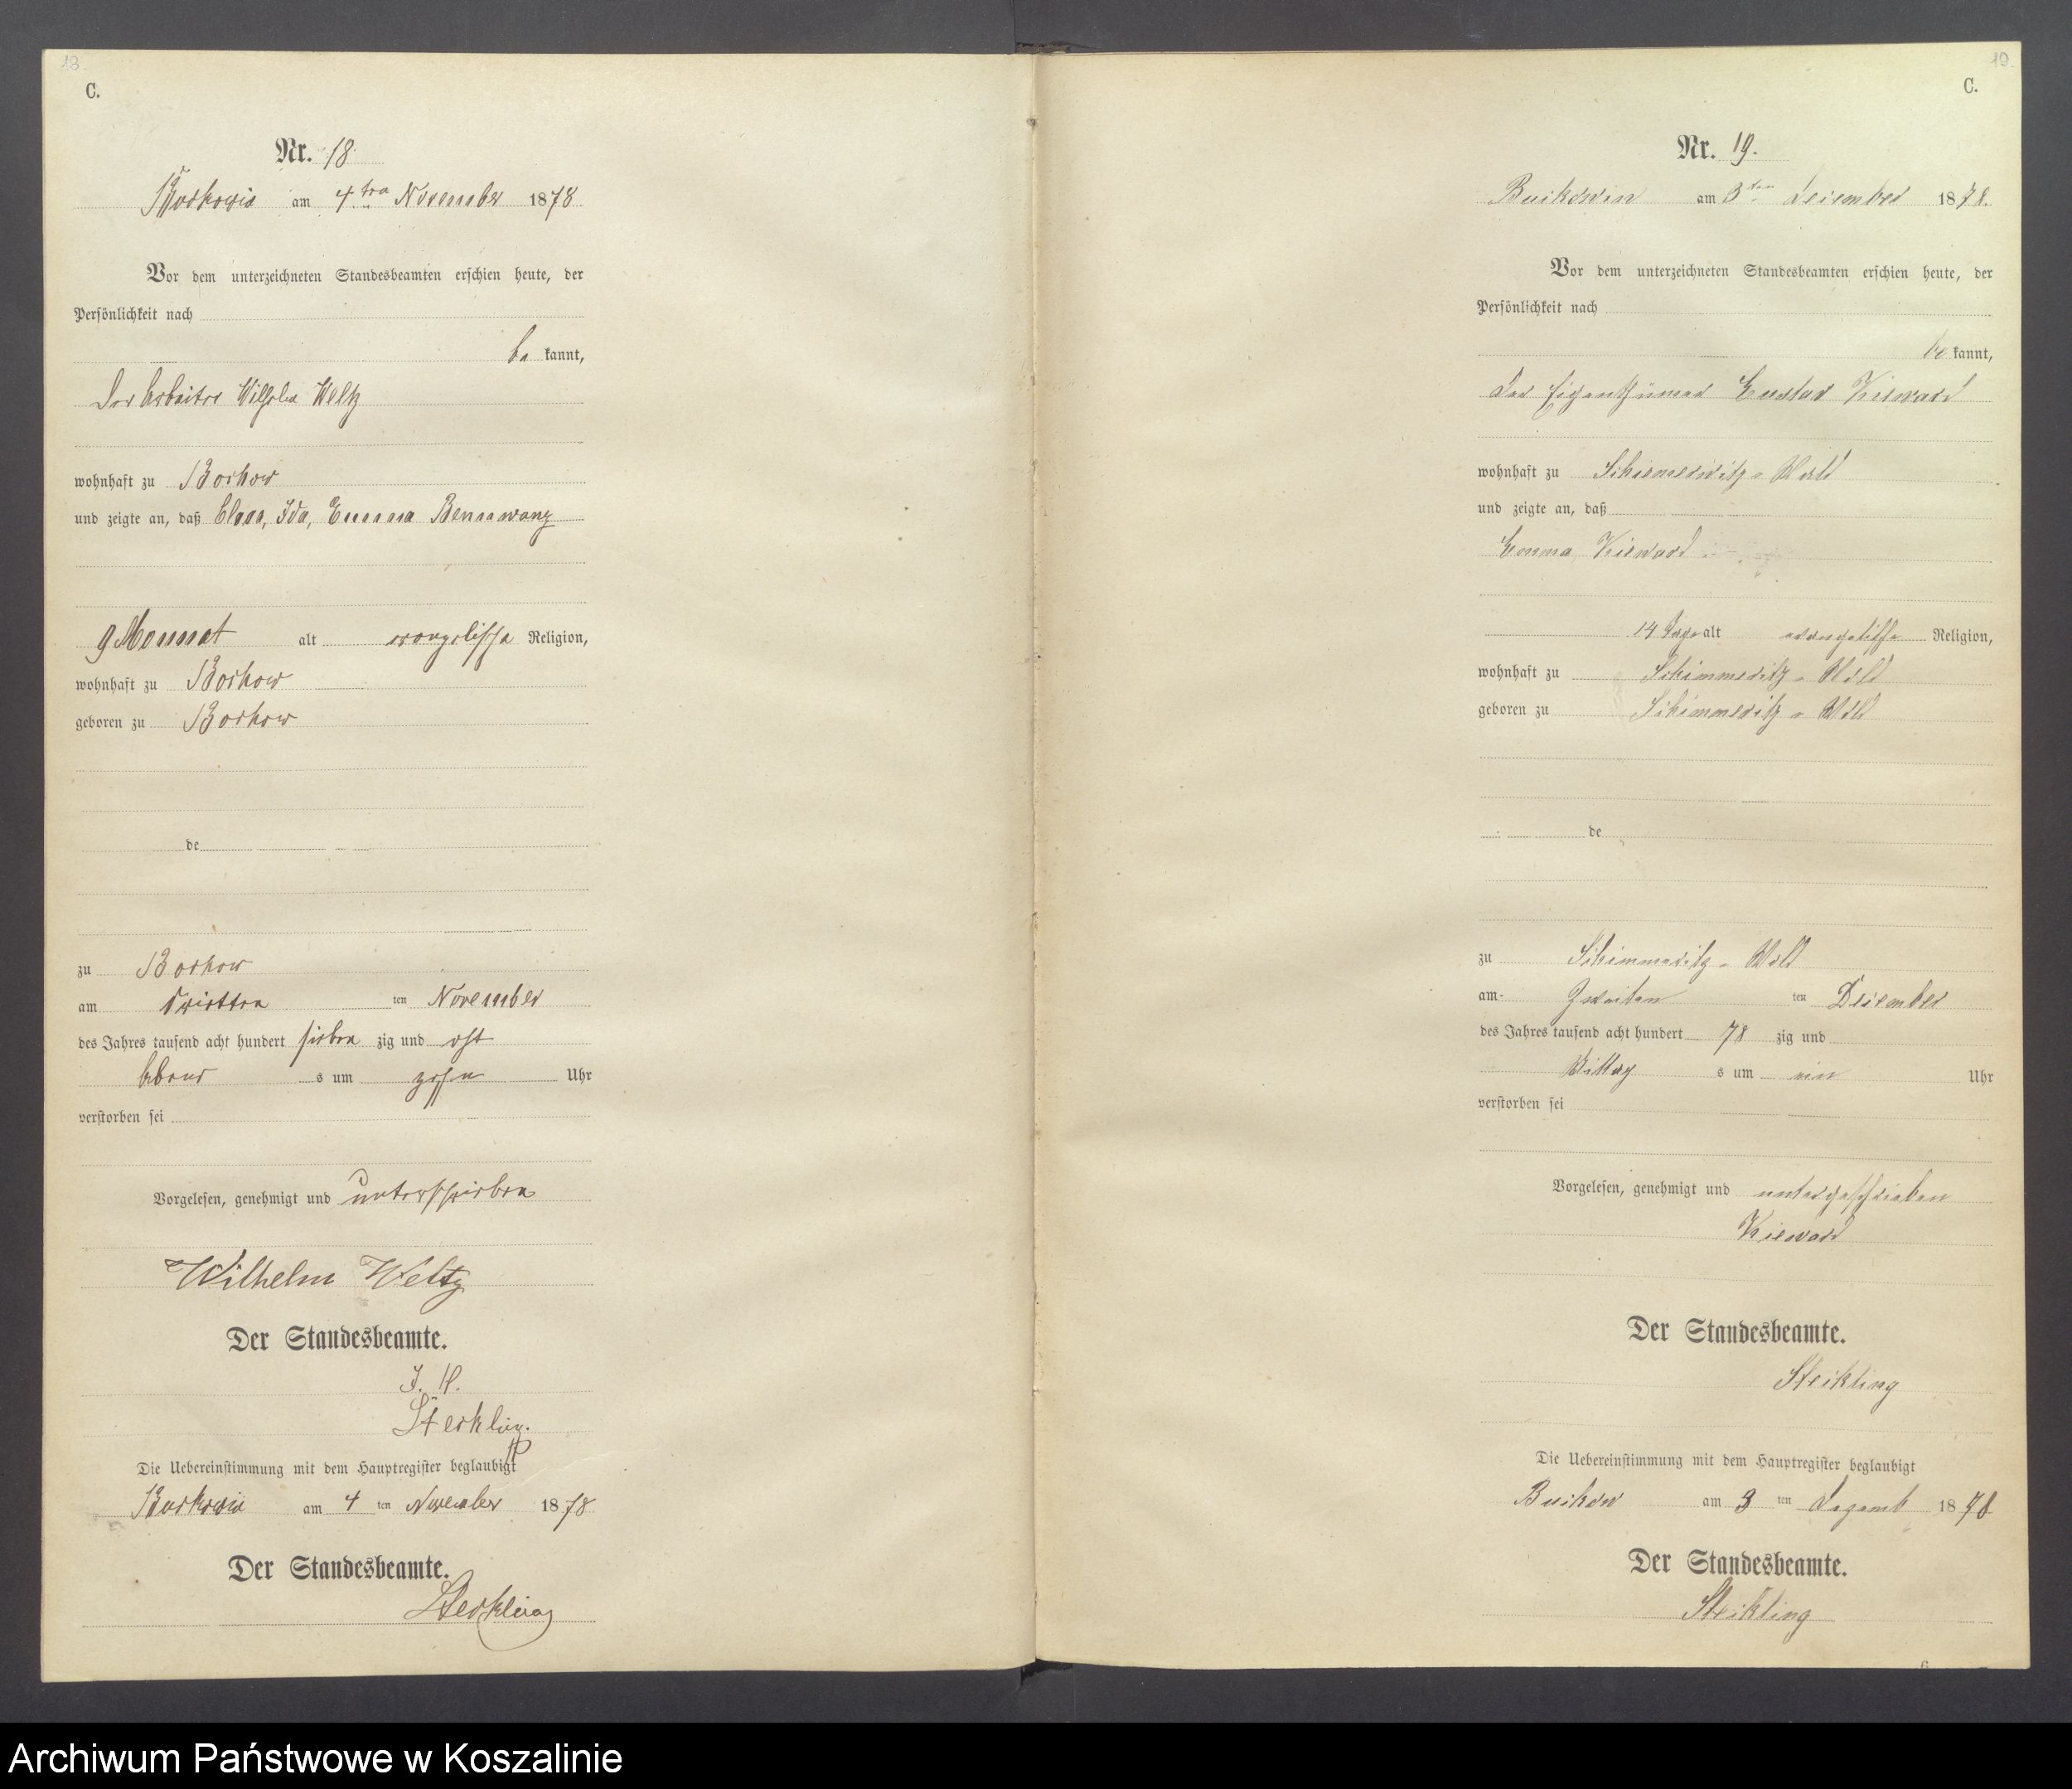 18.
C.
Nr. 18
am 4ten November 1878
Vor dem unterzeichneten Standesbeamten erschien heute, der
Persönlichkeit nach
be kannt,
der Arbeiter Wilhelm Weltz
wohnhaft zu Borkow
und zeigte an, daß Clara, Ida, Emma
9 Monnat alt evangelische Religion,
wohnhaft zu Borkow
geboren zu Borkow
de
zu Borkow
am dritten ten November
des Jahres tausend acht hundert sieben zig und acht
Abend s um zehn Uhr
verstorben sei
Vorgelesen, genehmigt und unterschrieben
Wilhelm Weltz
Der Standesbeamte.
Die Uebereinstimmung mit dem Hauptregister beglaubigt
am 4 ten November 1878
Der Standesbeamte.
19.
C.
Nr. 19.
am 3ten Dezember 1878.
Vor dem unterzeichneten Standesbeamten erschien heute, der
Persönlichkeit nach
be kannt,
der Eigenthümer Gustav Kieward
wohnhaft zu
und zeigte an, daß
Emma Kieward
14 Tage alt evangelische Religion,
wohnhaft zu Schimmeritz
geboren zu Schimmeritz
de
zu Schimmeritz
am Zweiten ten Dezember
des Jahres tausend acht hundert 78 zig und
Mittag s um ein Uhr
verstorben sei
Vorgelesen, genehmigt und untergeschrieben
Kieward
Der Standesbeamte.
Die Uebereinstimmung mit dem Hauptregister beglaubigt
am 3 ten Dezemb 1878
Der Standesbeamte.
6
Archiwum Państwowe w Koszalinie